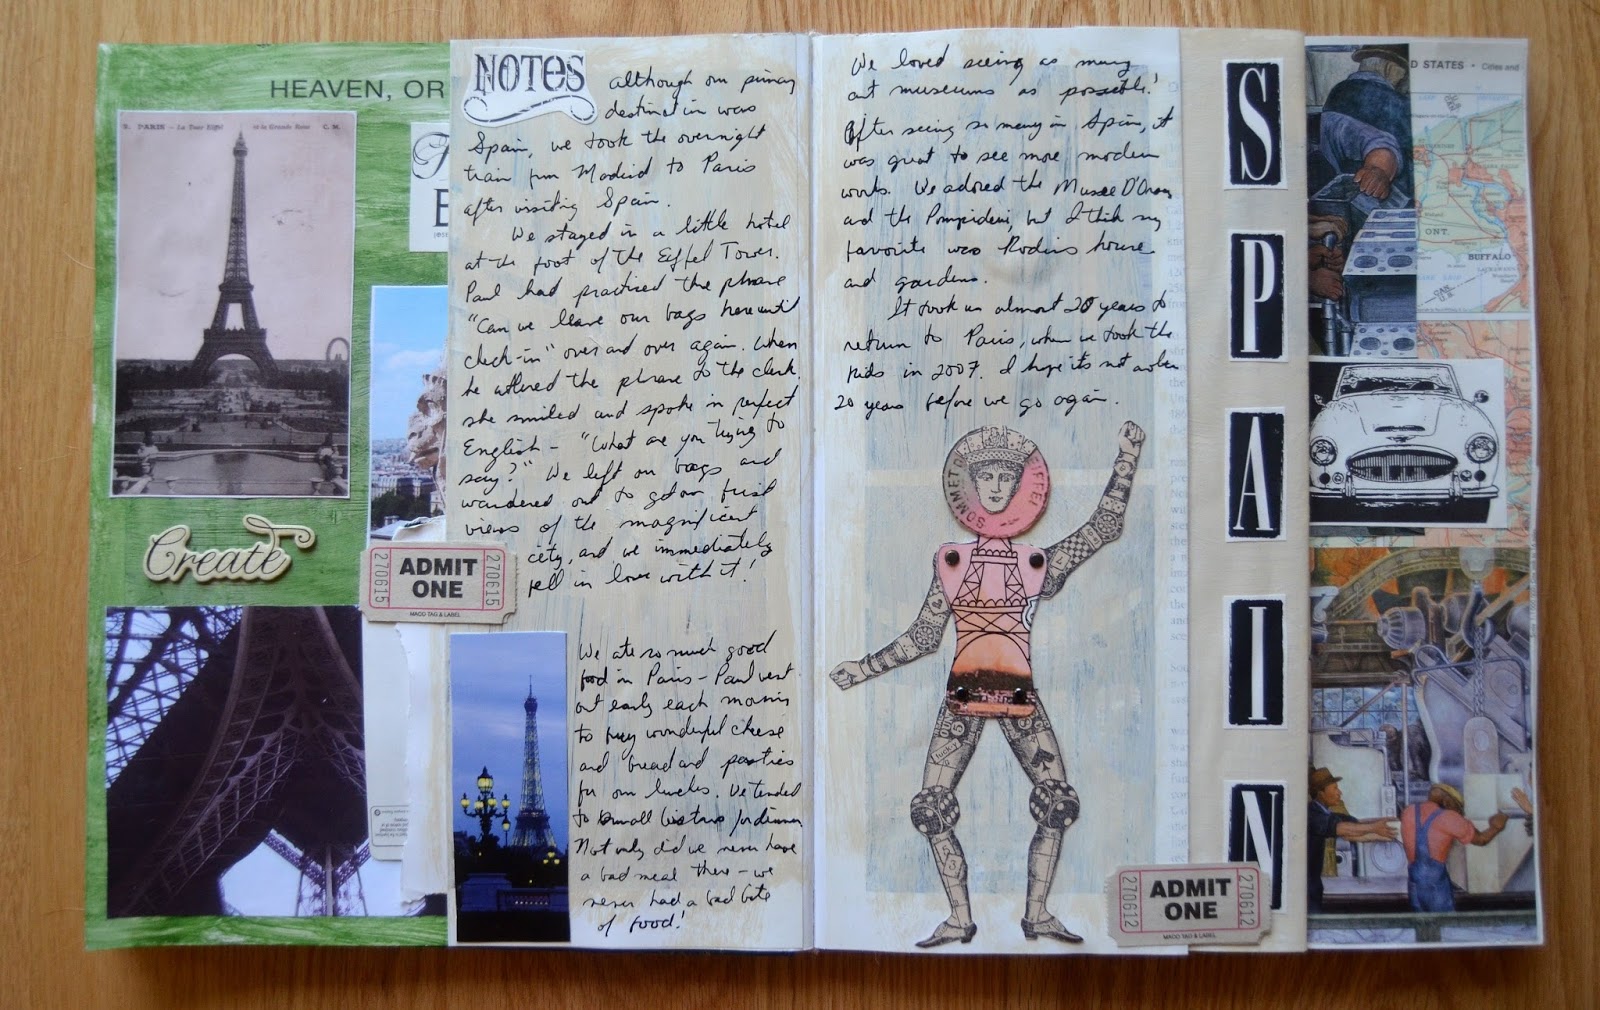 HEAVEN, OR
2. PARIS - La Tour Eiffel et la Grande Roue C. M.
Create
ADMIT
ONE
270615
270615
MACO TAG & LABEL
NOTES
although our primary
destination was
Spain, we took the overnight
train from Madrid to Paris
after visiting Spain.
We stayed in a little hotel
at the foot of the Eiffel Tower.
Paul had practiced the phrase
"Can we leave our bags here until
check-in" over and over again. When
he uttered the phrase to the clerk,
she smiled and spoke in perfect
English - "What are you trying to
say?" We left our bags and
wandered out to get our first
views of the magnificent
city, and we immediately
fell in love with it!
We ate so much good
food in Paris - Paul went
out early each morning
to buy wonderful cheese
and bread and pastries
for our lunches. We tended
to small bistros for dinner.
Not only did we never have
a bad meal there - we
never had a bad bite
of food!
We loved seeing as many
art museums as possible!
After seeing so many in Spain, it
was great to see more modern
works. We adored the Musee D'Orsay
and the Pompideu, but I think my
favorite was Rodin's house
and gardens.
It took us almost 20 years to
return to Paris, when we took the
kids in 2007. I hope it's not another
20 years before we go again.
SOMMET D EIFFEL
lucky
ADMIT
ONE
270612
270612
MACO TAG & LABEL
SPAIN
D STATES • Cities and
ONT.
BUFFALO
CAN.
U.S.